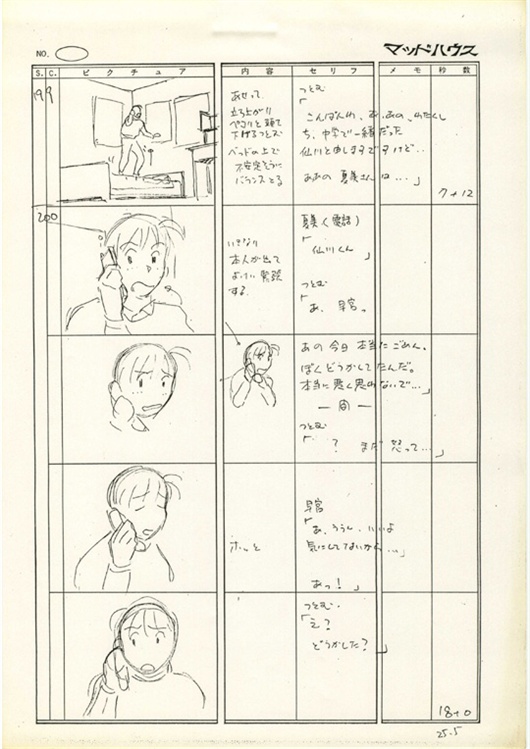 NO.
マッドハウス
S. C. ピクチュア 内容 セリフ メモ 秒数
199
あせって、
立ち上がり
ペコリと頭を
下げるつとむ
ベッドの上で
不安定そうに
バランスとる
つとむ
「こんばんわ、あ、あの、わたくし
中学で一緒だった
仙川と申しますですけど…
あのの 夏美さんは…」
7+12
200
いきなり
本人が出て
よけいに緊張
する。
夏美(電話)
「仙川くん」
つとむ
「あ、早宮。
あの今日本当にごめん。
ぼくどうかしてたんだ。
本当に悪く思わないで…」
―間―
つとむ
「? まだ 怒って…」
ホッと
早宮
「あ、ううん、いいよ
気にしてないから…」
あっ!」
つとむ
「え?
どうかした?」
18+0
25.5